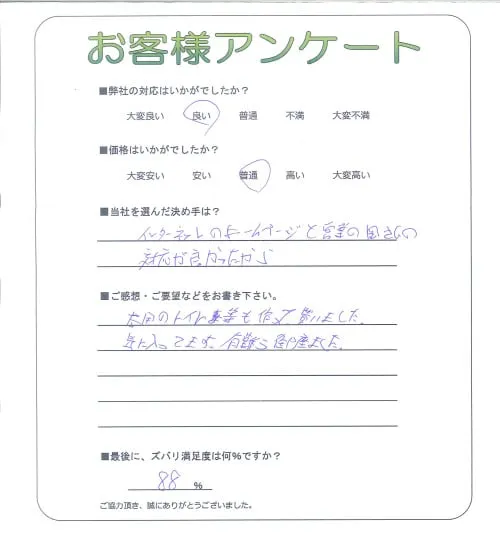 お客様アンケート
■弊社の対応はいかがでしたか？
大変良い 良い 普通 不満 大変不満
■価格はいかがでしたか？
大変安い 安い 普通 高い 大変高い
■当社を選んだ決め手は？
インターネットのホームページと営業の
対応が良かったから
■ご感想・ご要望などをお書き下さい。
のトイレ も作って貰いました。
気に入ってます。有難う御座ました。
■最後に、ズバリ満足度は何%ですか？
88 %
ご協力頂き、誠にありがとうございました。